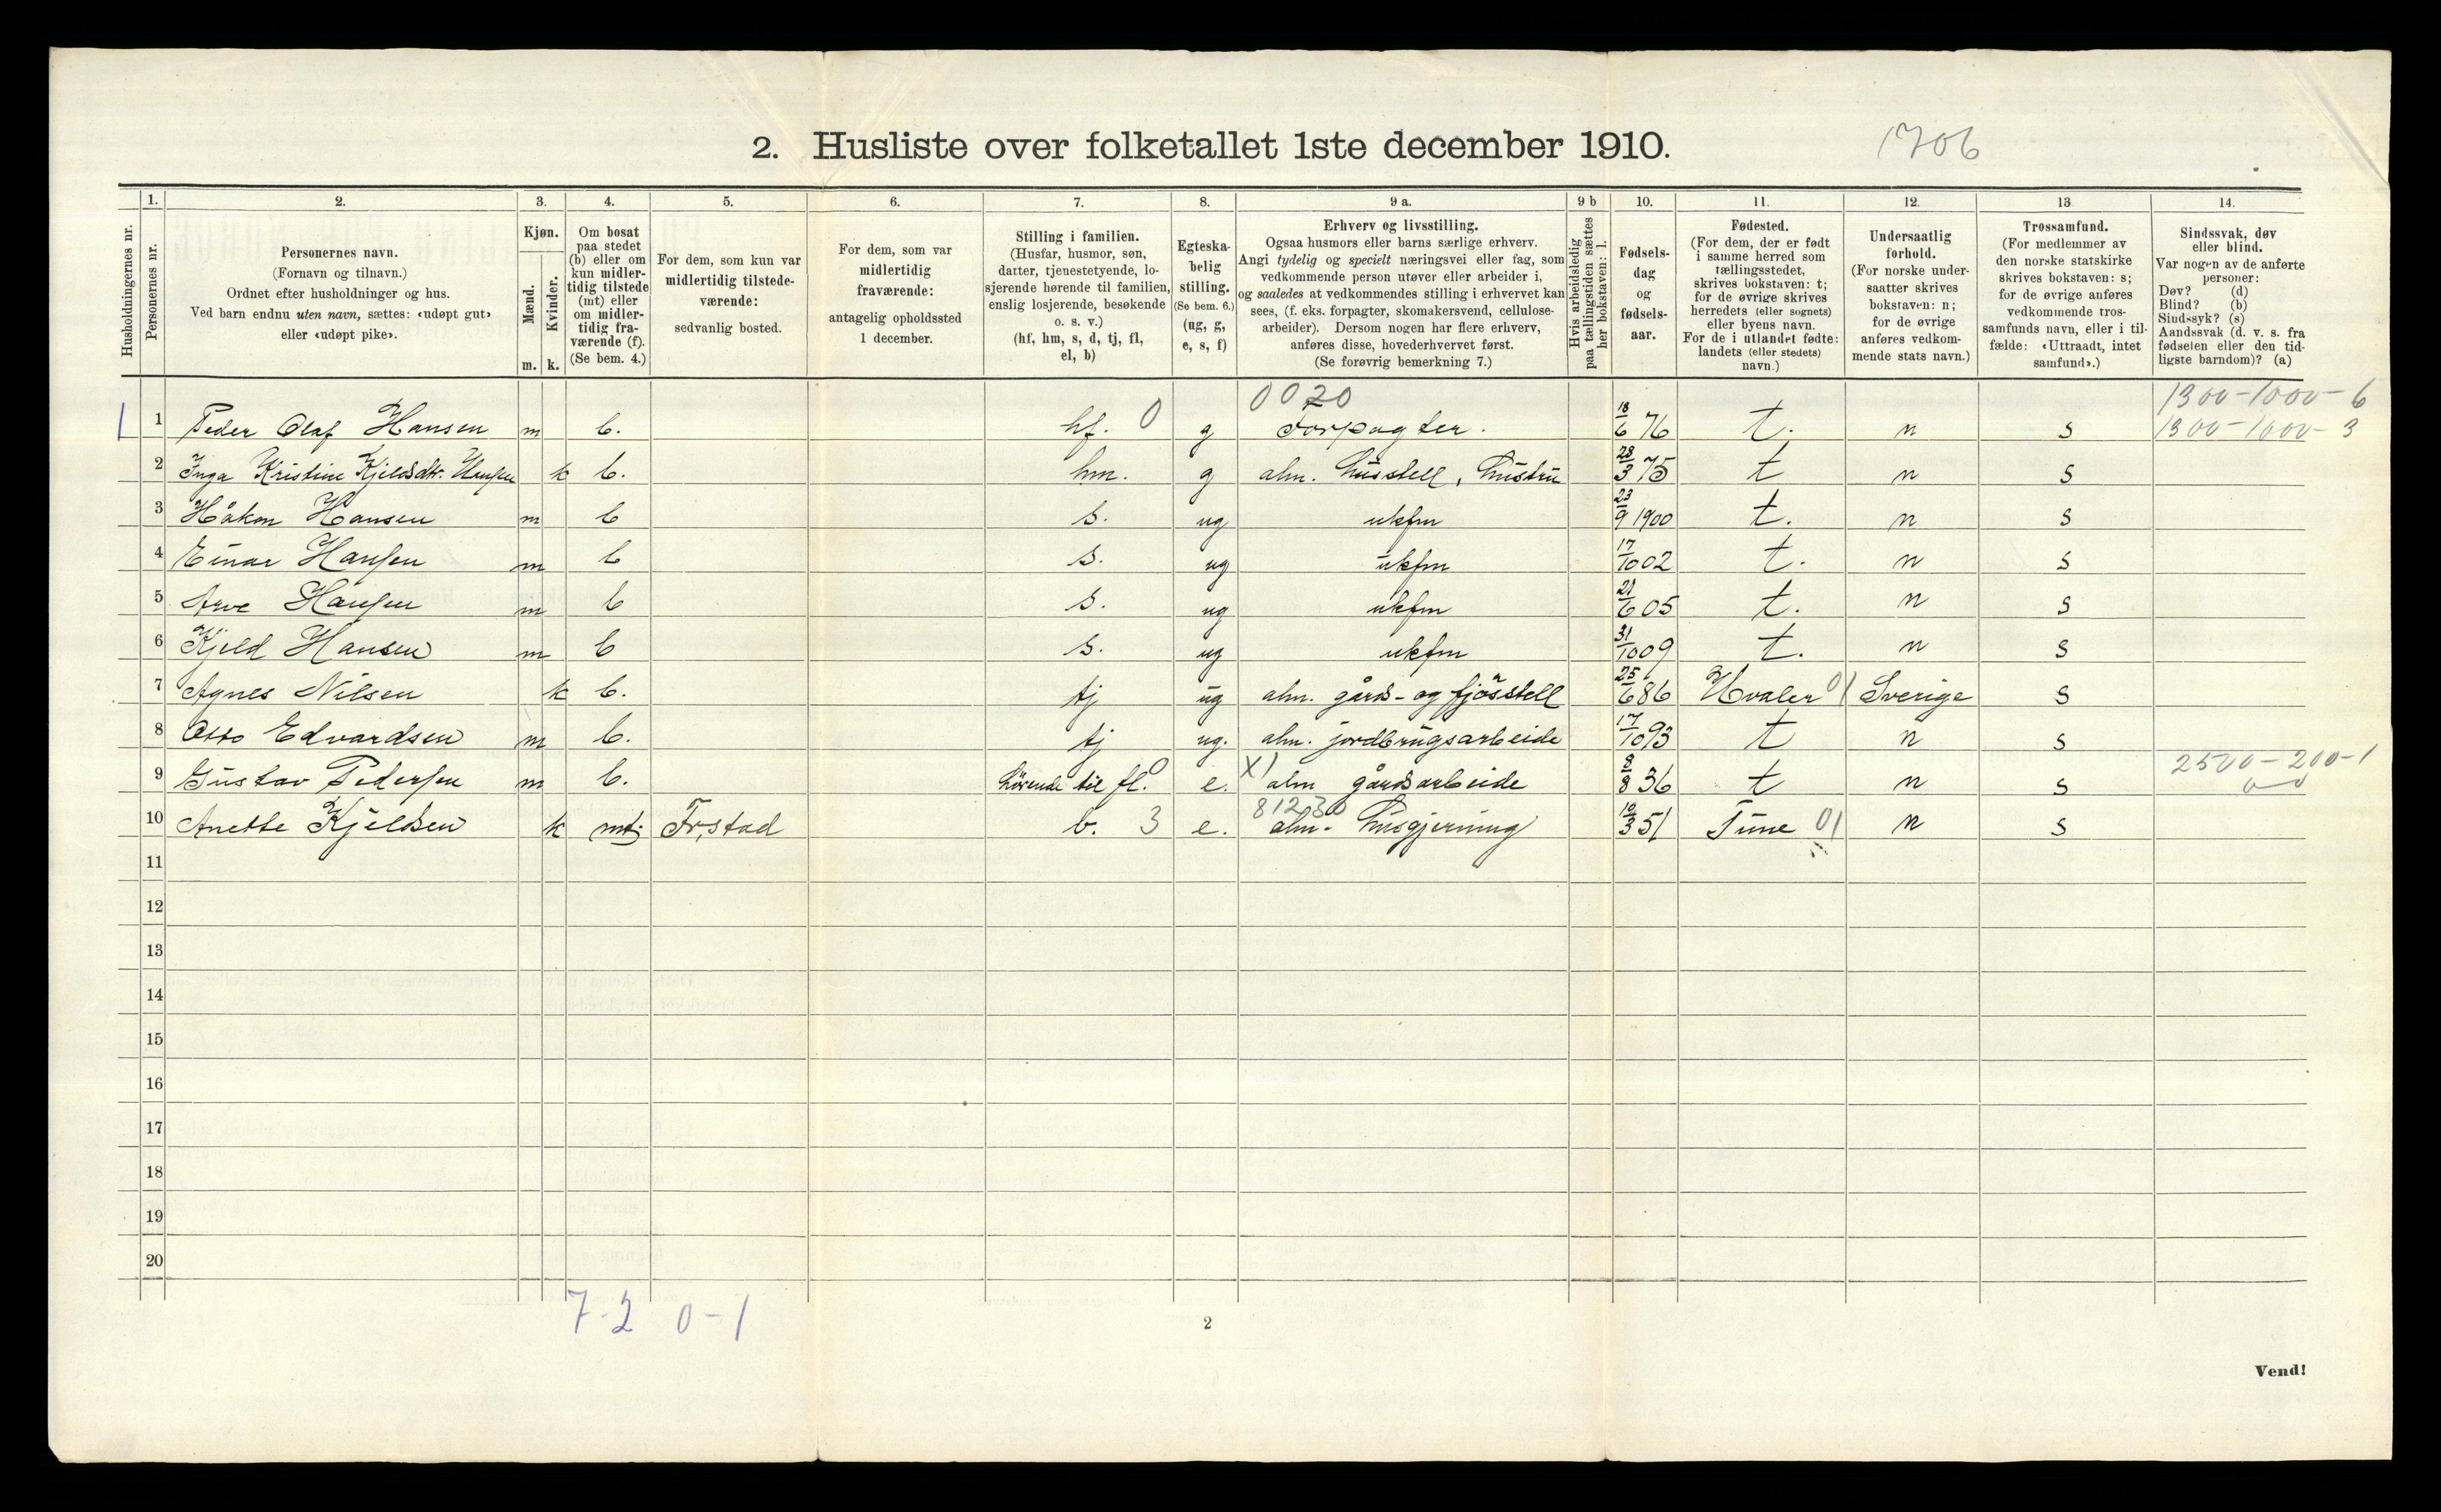 2. Husliste over folketallet 1ste december 1910. 1706
Husholdningernes nr.
1.
Personernes nr.
2.
Personernes navn.
(Fornavn og tilnavn.)
Ordnet efter husholdninger og hus.
Ved barn endnu uten navn, sættes: «udøpt gut»
eller «udøpt pike».
3.
Kjøn.
Mænd.
Kvinder.
m. k.
4.
Om bosat
paa stedet
(b) eller om
kun midler-
tidig tilstede
(mt) eller
om midler-
tidig fra-
værende (f).
(Se bem. 4.)
5.
For dem, som kun var
midlertidig tilstede-
værende:
sedvanlig bosted.
6.
For dem, som var
midlertidig
fraværende:
antagelig opholdssted
1 december.
7.
Stilling i familien.
(Husfar, husmor, søn,
datter, tjenestetyende, lo-
sjerende hørende til familien,
enslig losjerende, besøkende
o. s. v.)
(hf, hm, s, d, tj, fl,
el, b)
8.
Egteska-
belig
stilling.
(Se bem. 6.)
(ug, g,
e, s, f)
9 a.
Erhverv og livsstilling.
Ogsaa husmors eller barns særlige erhverv.
Angi tydelig og specielt næringsvei eller fag, som
vedkommende person utøver eller arbeider i,
og saaledes at vedkommendes stilling i erhvervet kan
sees, (f. eks. forpagter, skomakersvend, cellulose-
arbeider). Dersom nogen har flere erhverv,
anføres disse, hovederhvervet først.
(Se forøvrig bemerkning 7.)
9 b
Hvis arbeidsledig
paa tællingstiden sættes
her bokstaven: l.
10.
Fødsels-
dag
og
fødsels-
aar.
11.
Fødested.
(For dem, der er født
i samme herred som
tællingsstedet,
skrives bokstaven: t;
for de øvrige skrives
herredets (eller sognets)
eller byens navn.
For de i utlandet fødte:
landets (eller stedets)
navn.)
12.
Undersaatlig
forhold.
(For norske under-
saatter skrives
bokstaven: n;
for de øvrige
anføres vedkom-
mende stats navn.)
13
Trossamfund.
(For medlemmer av
den norske statskirke
skrives bokstaven: s;
for de øvrige anføres
vedkommende tros-
samfunds navn, eller i til-
fælde: «Uttraadt, intet
samfund».)
14.
Sindssvak, døv
eller blind.
Var nogen av de anførte
personer:
Døv? (d)
Blind? (b)
Sindssyk? (s)
Aandssvak (d. v. s. fra
fødselen eller den tid-
ligste barndom)? (a)
0020 1300-1000-6
1 1 Peder Olaf Hansen m b. hf. 0 g Forpagter. 18/6 76 t. n s 1300-1000-3
2 Inga Kristine Kjeldsdtr. Hansen k b. hm. g alm. husstell, hustru 28/3 75 t n s
3 Håkon Hansen m b s. ug ukfm 23/9 1900 t. n s
4 Einar Hansen m b s. ug ukfm 17/10 02 t. n s
5 Arve Hansen m b s. ug ukfm 21/6 05 t. n s
6 Kjeld Hansen m b s. ug ukfm 31/10 09 t. n s
7 Agnes Nilsen k b. tj ug alm. gårds- og fjøsstell 25/6 86 Hvaler 01 Sverige s
8 Otto Edvardsen m b. tj ug. alm. jordbrugsarbeide 17/10 93 t n s
2500-200-1
9 Gustav Pedersen m b. hørende til fl. 0 e. X) alm gårdsarbeide 8/8 36 t n s
81230
10 Anette Kjeldsen k mt; Fr.stad b. 3 e. alm. husgjerning 10/3 51 Tune 01 n s
11
12
13
14
15
16
17
18
19
20
7-2 0-1
2
Vend!